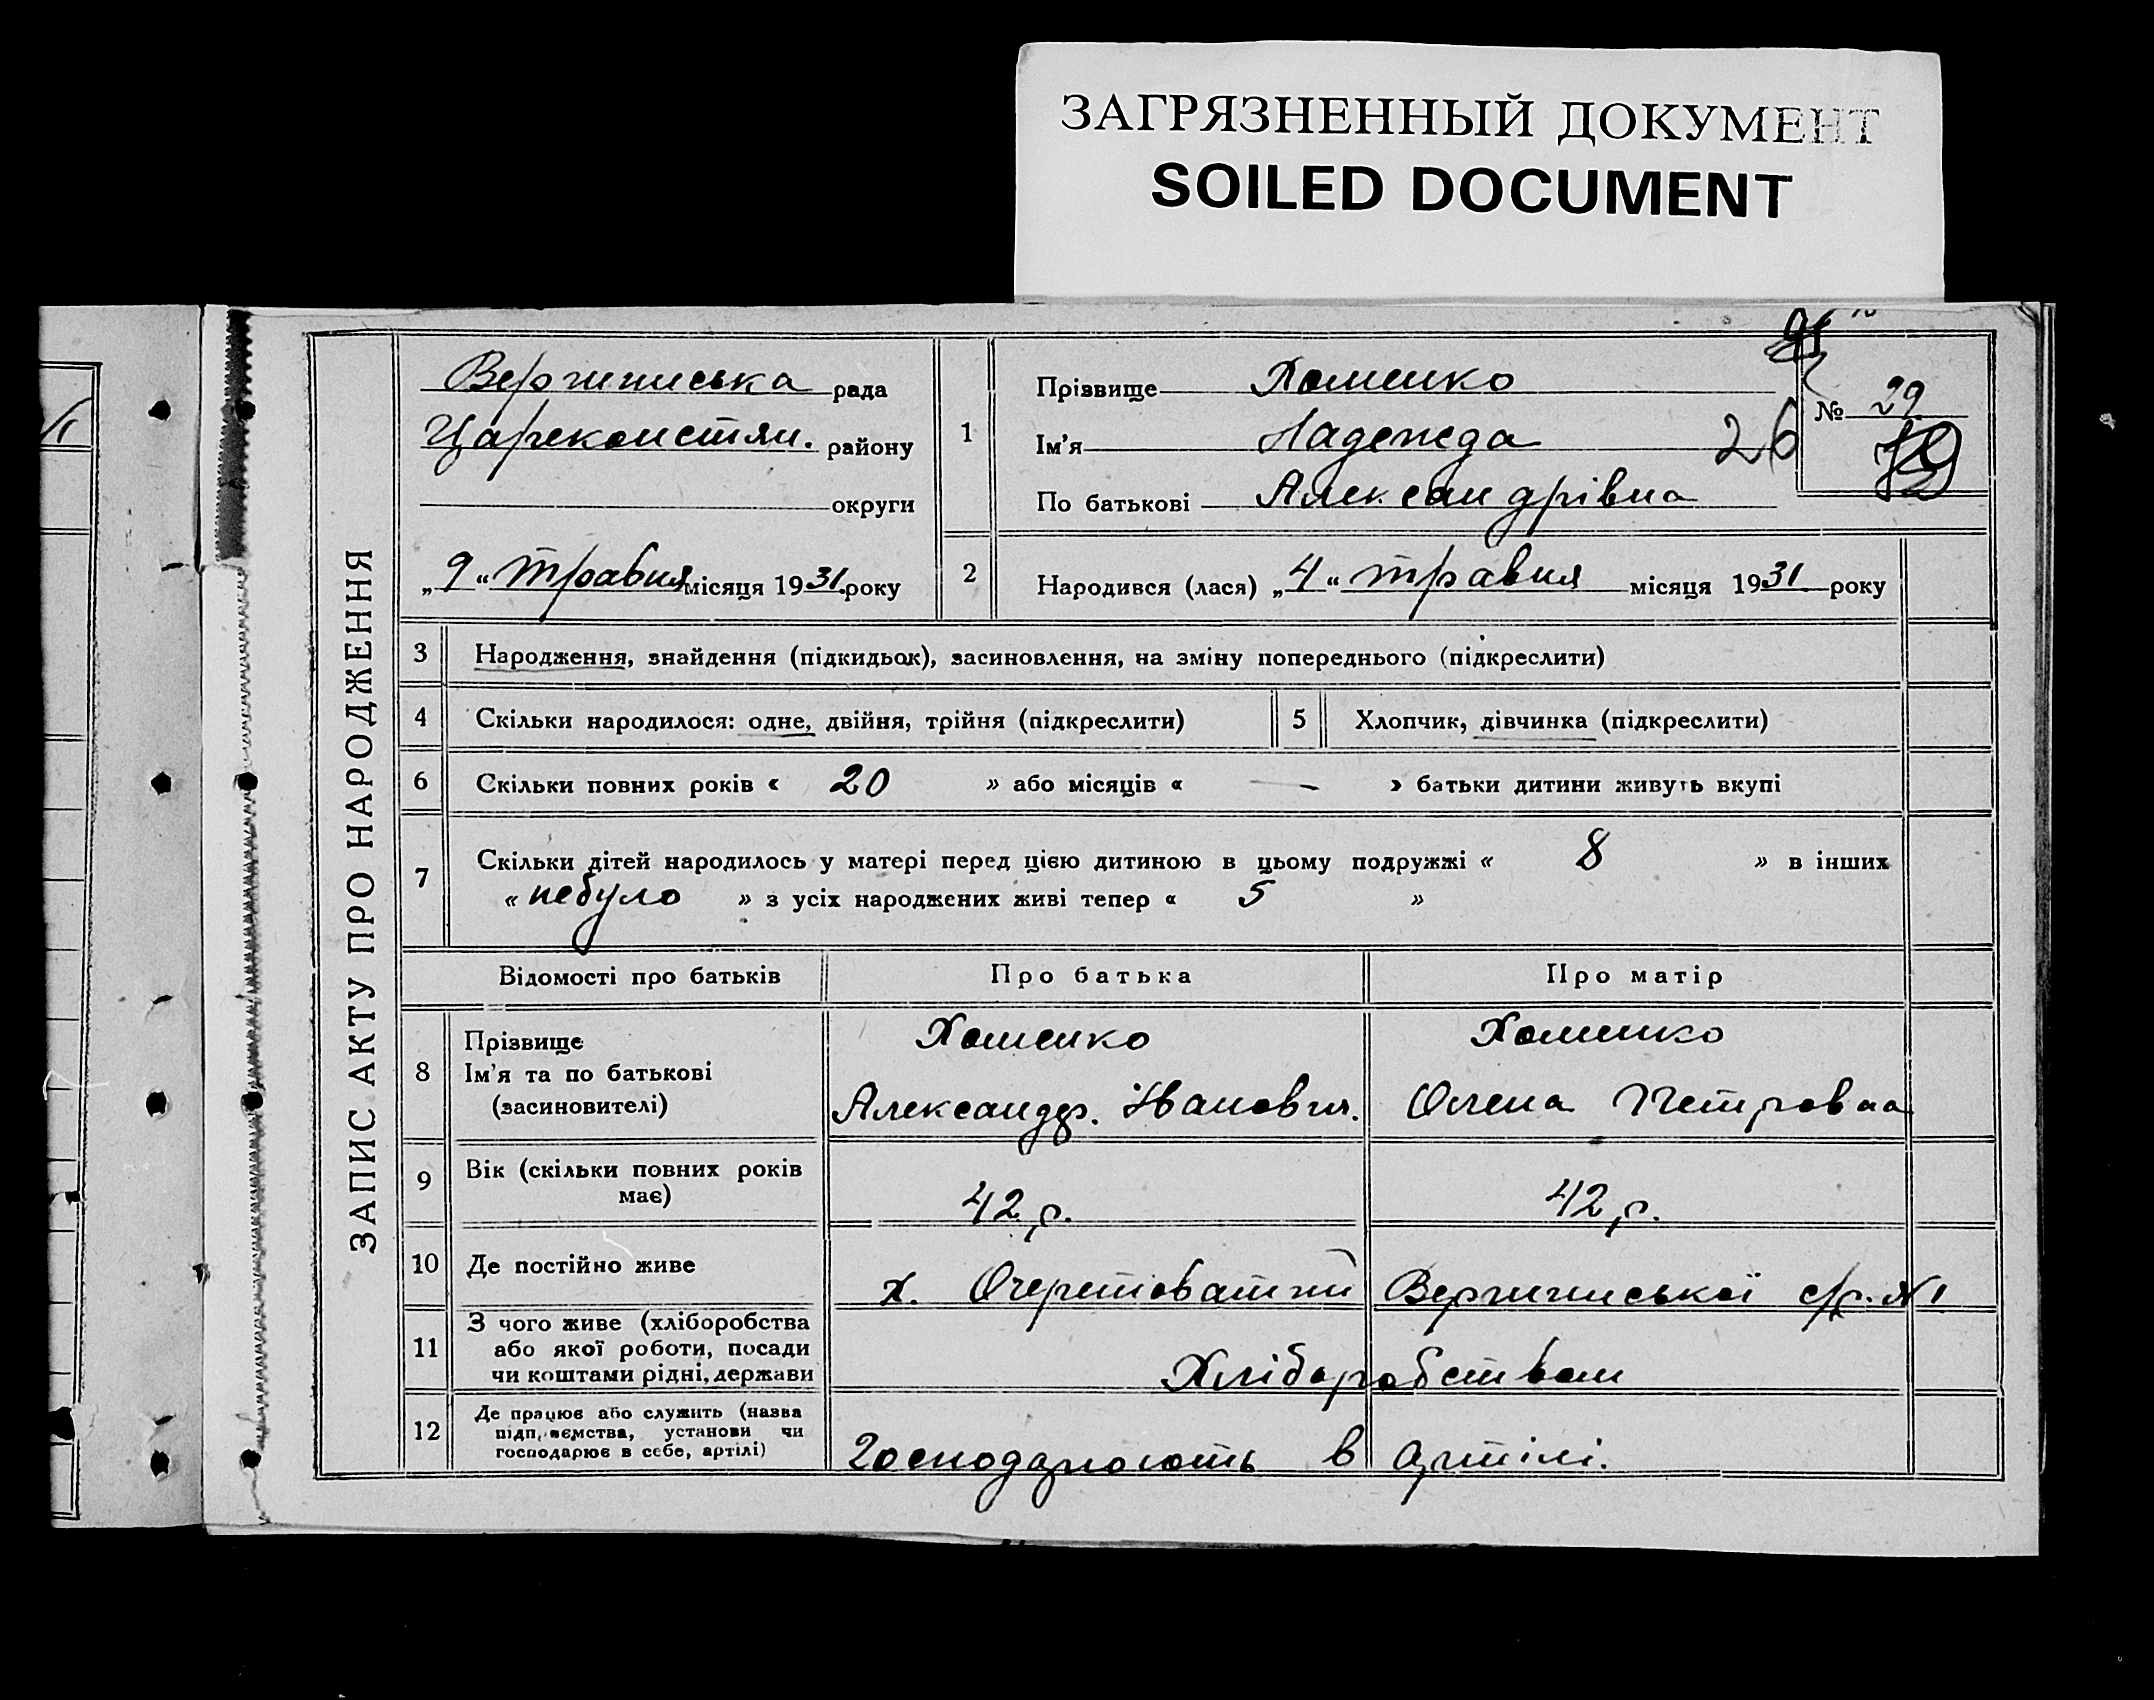 ЗАГРЯЗНЕННЫЙ ДОКУМЕНТ
SOILED DOCUMENT
ЗАПИС АКТУ ПРО НАРОДЖЕННЯ
рада
Цареконстян. району
округи
„9“ травня місяця 1931 року
1
Прізвище Хоменко
Ім'я Надежда
По батькові Александрівна
26
№ 29
2
Народився (лася) „4“ травня місяця 1931 року
3 Народження, знайдення (підкидьок), засиновлення, на зміну попереднього (підкреслити)
4 Скільки народилося: одне, двійня, трійня (підкреслити)
5 Хлопчик, дівчинка (підкреслити)
6 Скільки повних років « 20 » або місяців « — » батьки дитини живуть вкупі
7 Скільки дітей народилось у матері перед цією дитиною в цьому подружжі « 8 » в інших
« небуло » з усіх народжених живі тепер « 5 »
Відомості про батьків Про батька Про матір
8 Прізвище Хоменко Хоменко
Ім'я та по батькові Александр. Іванович. Олена Петровна
(засновителі)
9 Вік (скільки повних років
має) 42 р. 42 р.
10 Де постійно живе х. Очеретоватий с/р. №1
11 З чого живе (хліборобства
або якої роботи, посади
чи коштами рідні, держави Хліборобством
12 Де працює або служить (назва
підприємства, установи чи
господарює в себе, артілі) Господарюють в артілі.